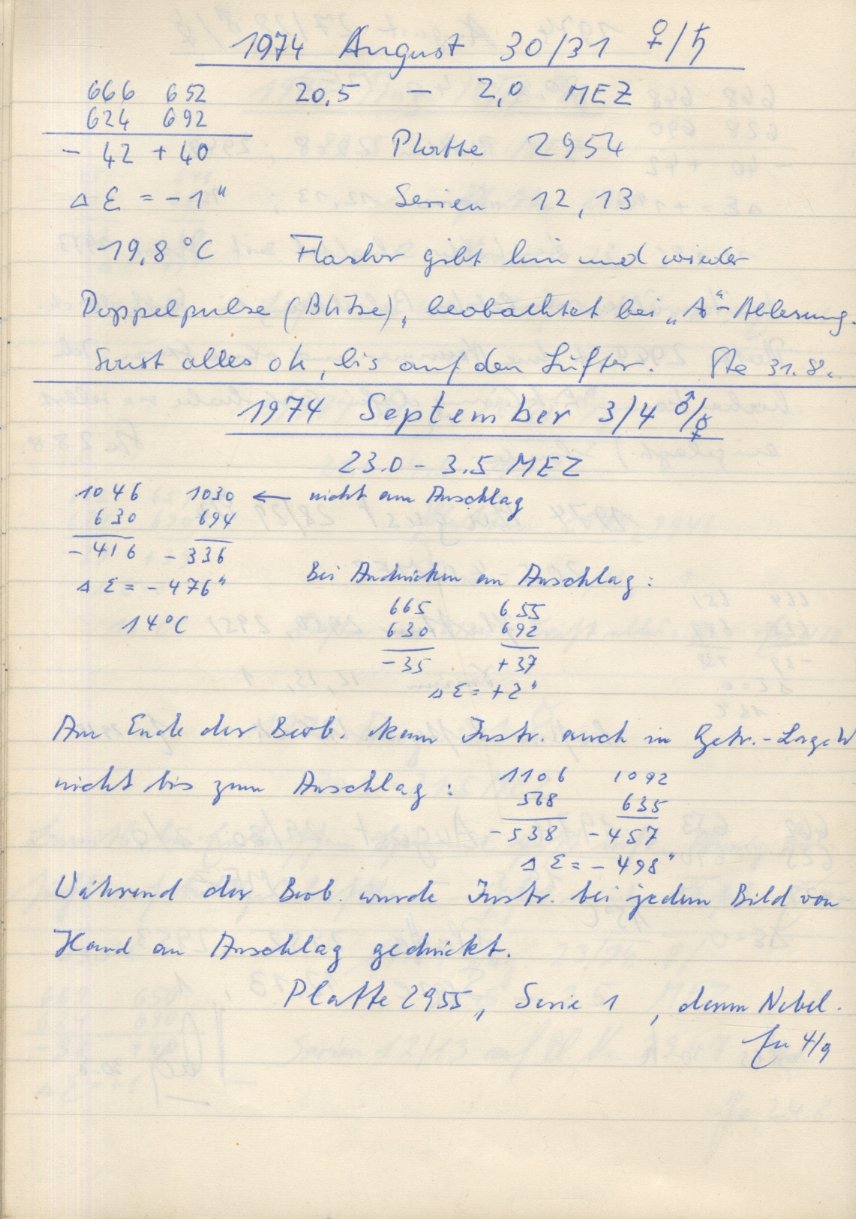 1974 August 30/31 ♀/♄
666 652 20,5 – 2,0 MEZ
624 692
- 42 + 40 Platte 2954
Δ Ɛ = - 1" Serien 12, 13
19,8 °C gibt hin und wieder
Doppelpulse (Blitze), beobachtet bei „A"-Ablesung.
Sonst alles ok, bis auf den Lüfter. Ste 31.8.
1974 September 3/4 ♂/☿
23.0 – 3.5 MEZ
1046 1030 ← nicht am Anschlag
630 694
- 416 - 336
Δ Ɛ = - 476" Bei Andrücken an Anschlag:
14°C
665 655
630 692
- 35 + 37
Δ Ɛ = + 2"
Am Ende der Beob. kam Instr. auch in Getr.-Lage W
nicht bis zum Anschlag: 1106 1092
568 635
- 538 - 457
Δ Ɛ = - 498"
Während der Beob. wurde Instr. bei jedem Bild von
Hand an Anschlag gedrückt.
Platte 2955, Serie 1, dann Nebel.
4/9